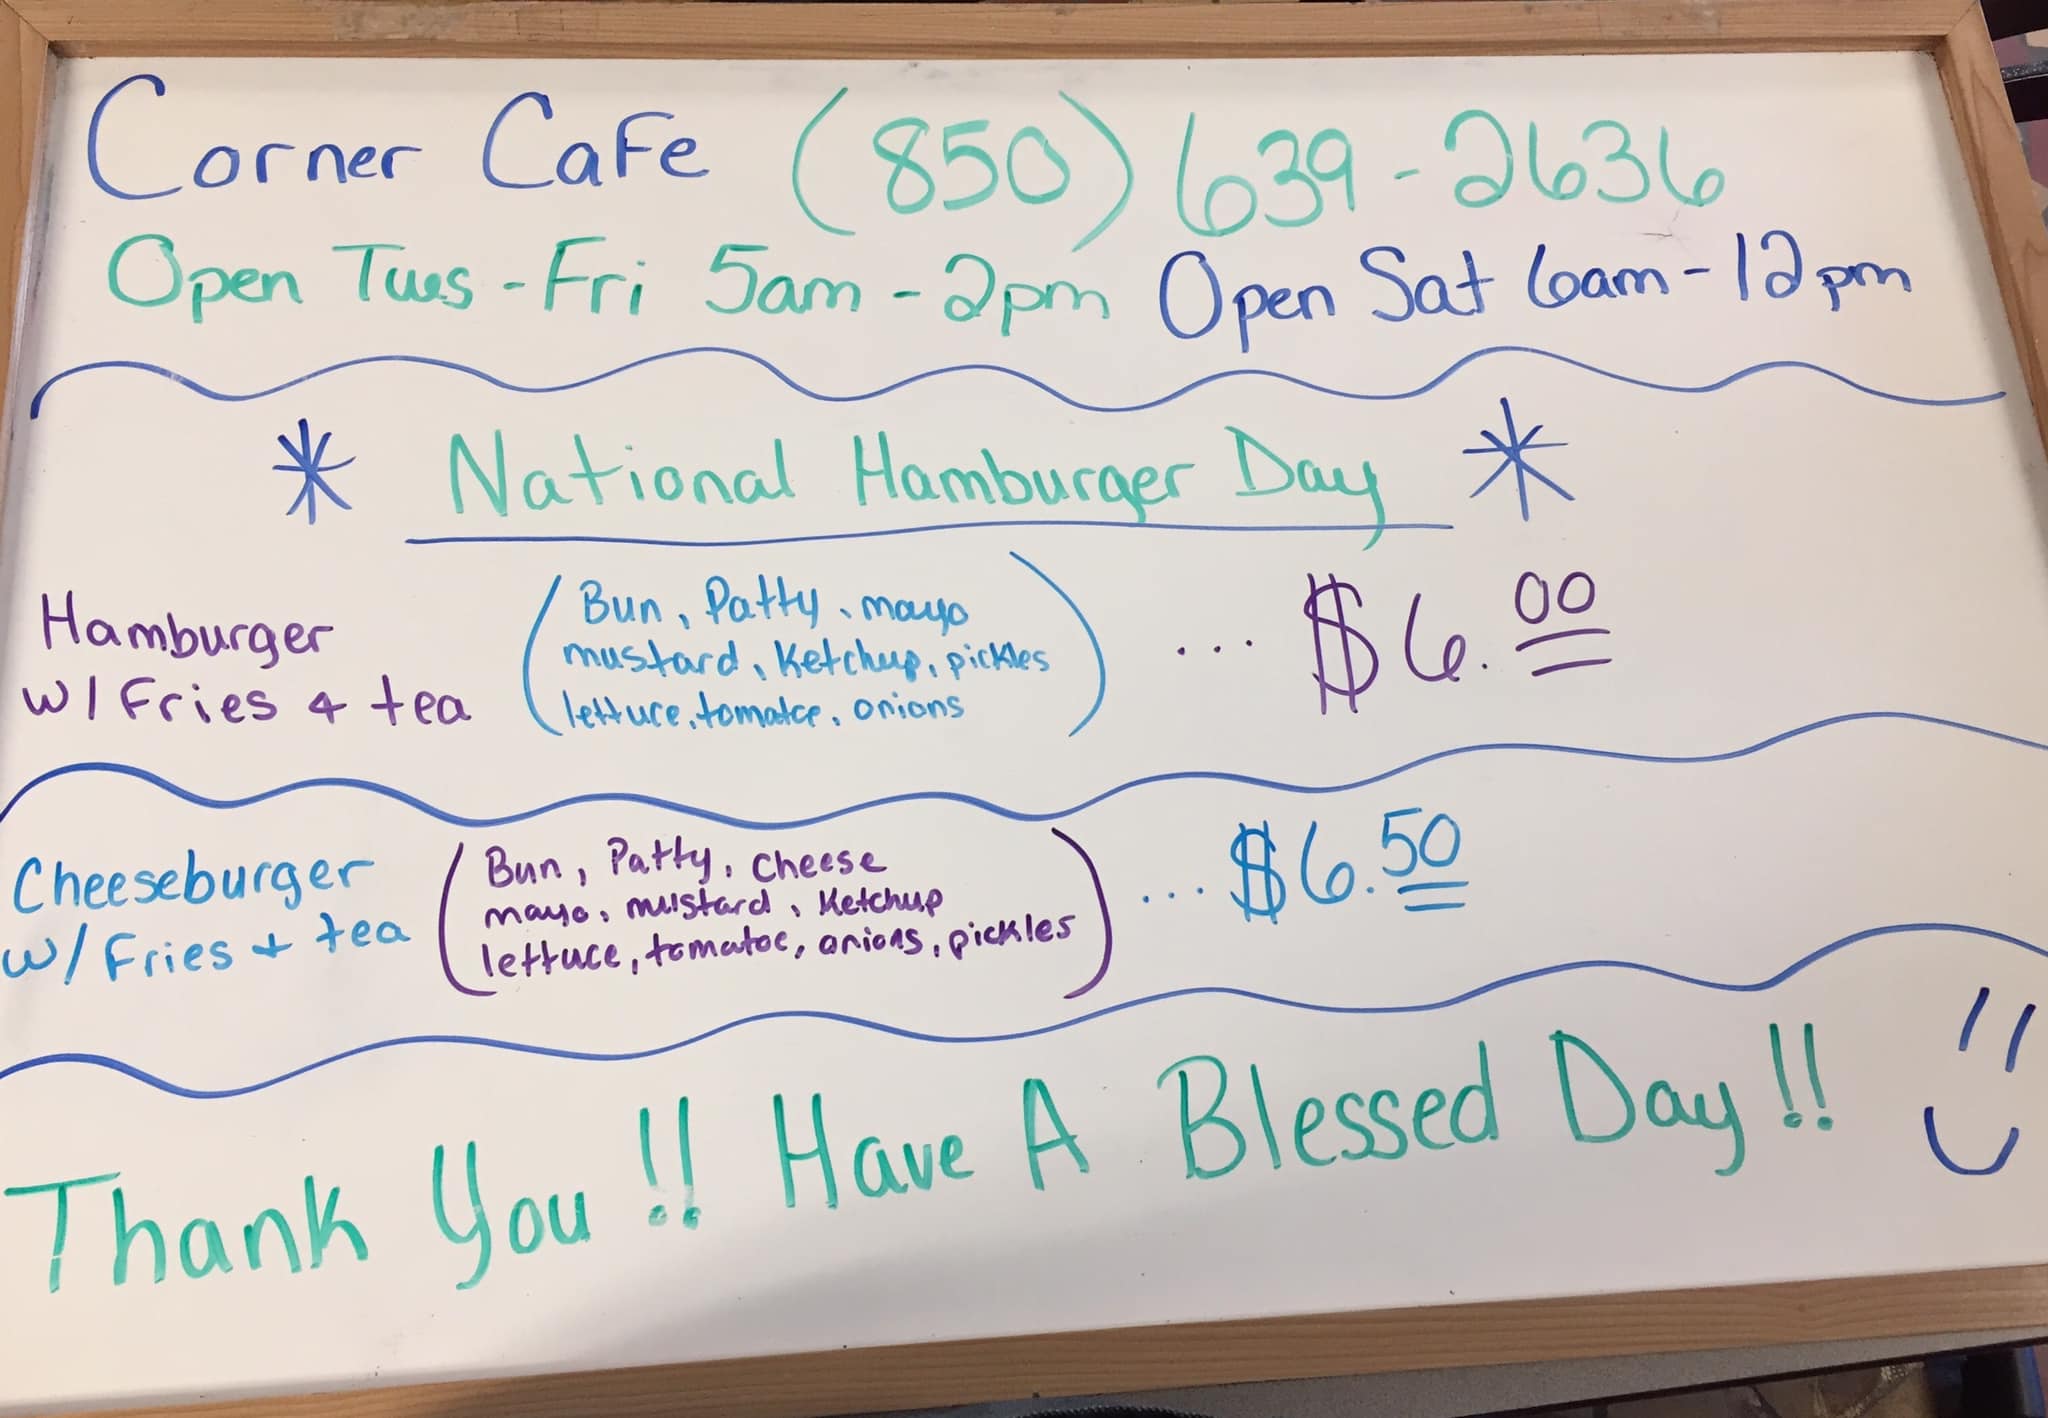 Corner Cafe (850) 639-2636
Open Tues-Fri 5am-2pm Open Sat 6am-12pm
* National Hamburger Day *
Hamburger
w/ Fries + tea
(Bun, Patty, mayo
mustard, Ketchup, pickles
lettuce, tomatoe, onions)
... $6.00
Cheeseburger
w/ Fries + tea
(Bun, Patty, cheese
mayo, mustard, Ketchup
lettuce, tomatoe, onions, pickles)
... $6.50
Thank You!! Have A Blessed Day!!